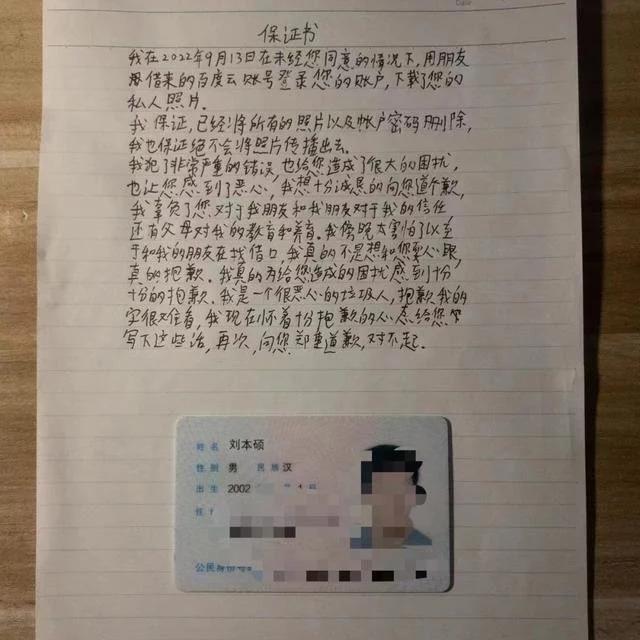 保证书
我在2022年9月13日在未经您同意的情况下,用朋友
借来的百度云账号登录您的账户,下载了您的
私人照片.
我保证,已经将所有的照片以及帐户密码删除,
我也保证绝不会将照片传播出去.
我犯了非常严重的错误,也给您造成了很大的困扰,
也让您感到了恶心,我想十分诚恳的向您道个歉,
我辜负了您对于我朋友和我朋友对于我的信任
还有父母对我的教育和养育.我傍晚太害怕了以至
于和我的朋友在找借口.我真的不是想和您耍心眼,
真的抱歉.我真的为给您造成的困扰感到十份
十份的抱歉.我是一个很恶心的垃圾人,抱歉我的
字很难看,我现在怀着十分抱歉的心态给您
写下这些话,再次,向您郑重道歉,对不起.
姓名 刘本硕
性别 男 民族 汉
出生 2002
住
公民身份号